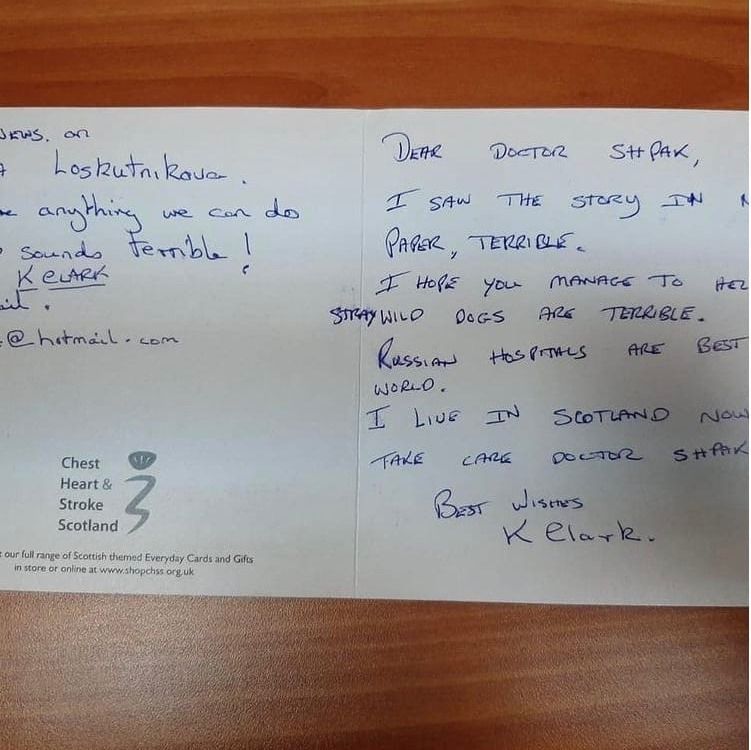 NEWS. on
Loskutnikova.
anything we can do
sounds terrible!
K CLARK
ail.
@hotmail.com
Chest
Heart &
Stroke
Scotland
our full range of Scottish themed Everyday Cards and Gifts
in store or online at www.shopchss.org.uk
DEAR DOCTOR SHPAK,
I SAW THE STORY IN N
PAPER, TERRIBLE.
I HOPE YOU MANAGE TO HEL
STRAY WILD DOGS ARE TERRIBLE.
RUSSIAN HOSPITALS ARE BEST
WORLD.
I LIVE IN SCOTLAND NOW
TAKE CARE DOCTOR SHPAK
BEST WISHES
K Clark.